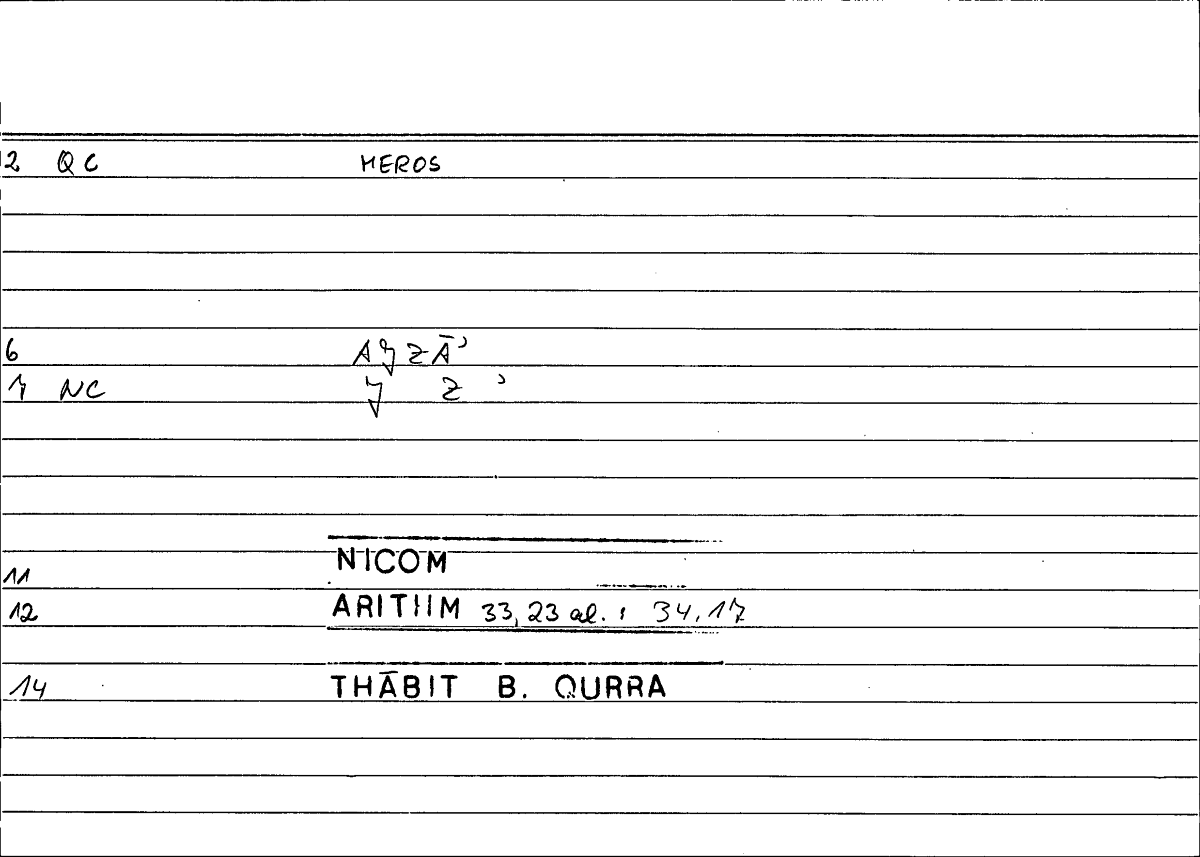 2 QC MEROS
6 AǰZĀʾ
7 NC ǰ Z ʾ
11 NICOM
12 ARITIIM 33,23 al. ; 34,17
14 THĀBIT B. QURRA